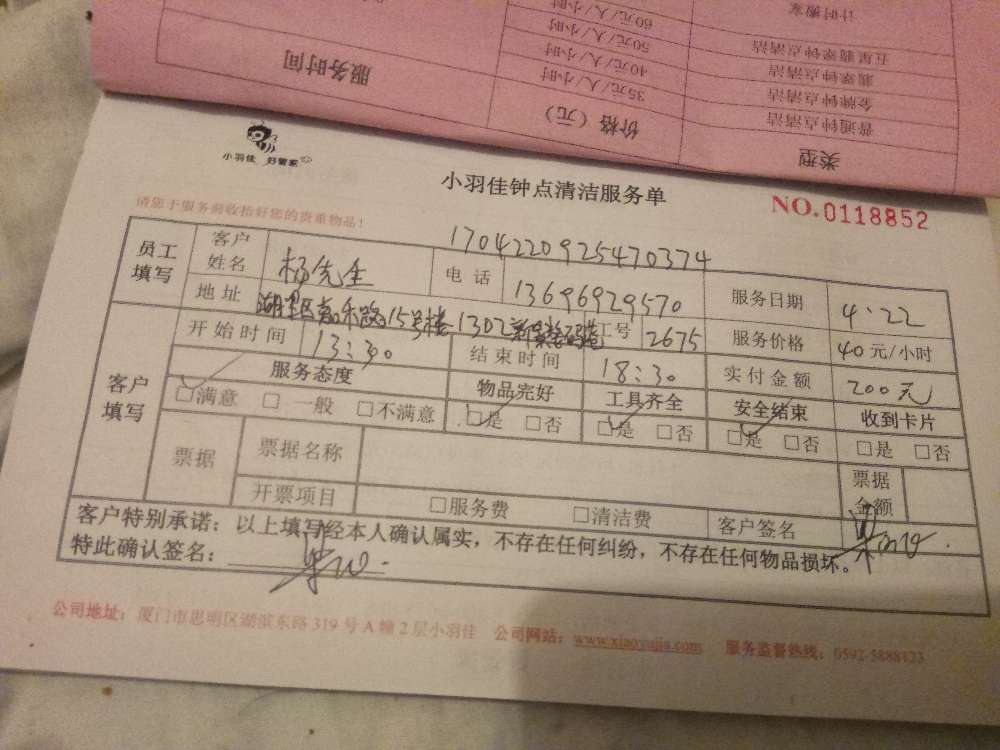 服务时间
计时搬家
60元/人/小时
五星翡翠钟点清洁
50元/人/小时
翡翠钟点清洁
40元/人/小时
金牌钟点清洁
35元/人/小时
普通钟点清洁
价格（元）
类型
小羽佳 好管家
小羽佳钟点清洁服务单
NO.0118852
请您于服务前收拾好您的贵重物品！
1704220925470374
员工填写
客户姓名 杨先生 电话 13696929570 服务日期 4:22
地址 15号楼1302 工号 2675 服务价格 40元/小时
客户填写
开始时间 13:30 结束时间 18:30 实付金额 200元
服务态度 物品完好 工具齐全 安全结束 收到卡片
□满意 □一般 □不满意 □是 □否 □是 □否 □是 □否 □是 □否
票据 票据名称 票据金额
开票项目 □服务费 □清洁费 客户签名
客户特别承诺：以上填写经本人确认属实，不存在任何纠纷，不存在任何物品损坏。
特此确认签名：
公司地址：厦门市思明区湖滨东路319号A幢2层小羽佳 公司网站：www.xiaoyujia.com 服务监督热线：0592-5888123